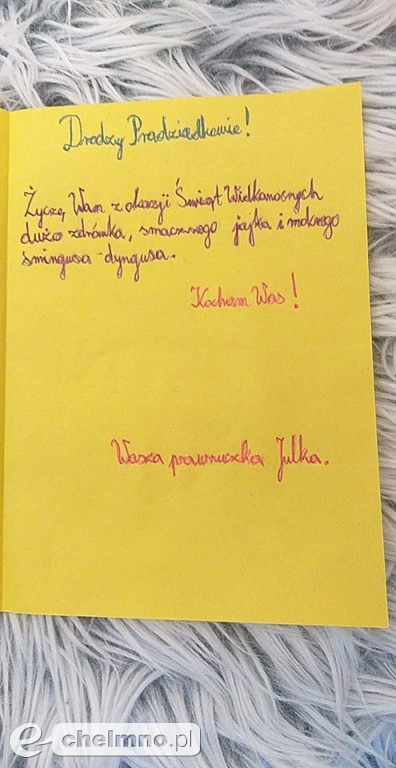 Drodzy Pradziadkowie!
Życzę Wam z okazji Świąt Wielkanocnych
dużo zdrówka, smacznego jajka i mokrego
śmingusa-dyngusa.
Kocham Was!
Wasza prawnuczka Julka.
e-chelmno.pl